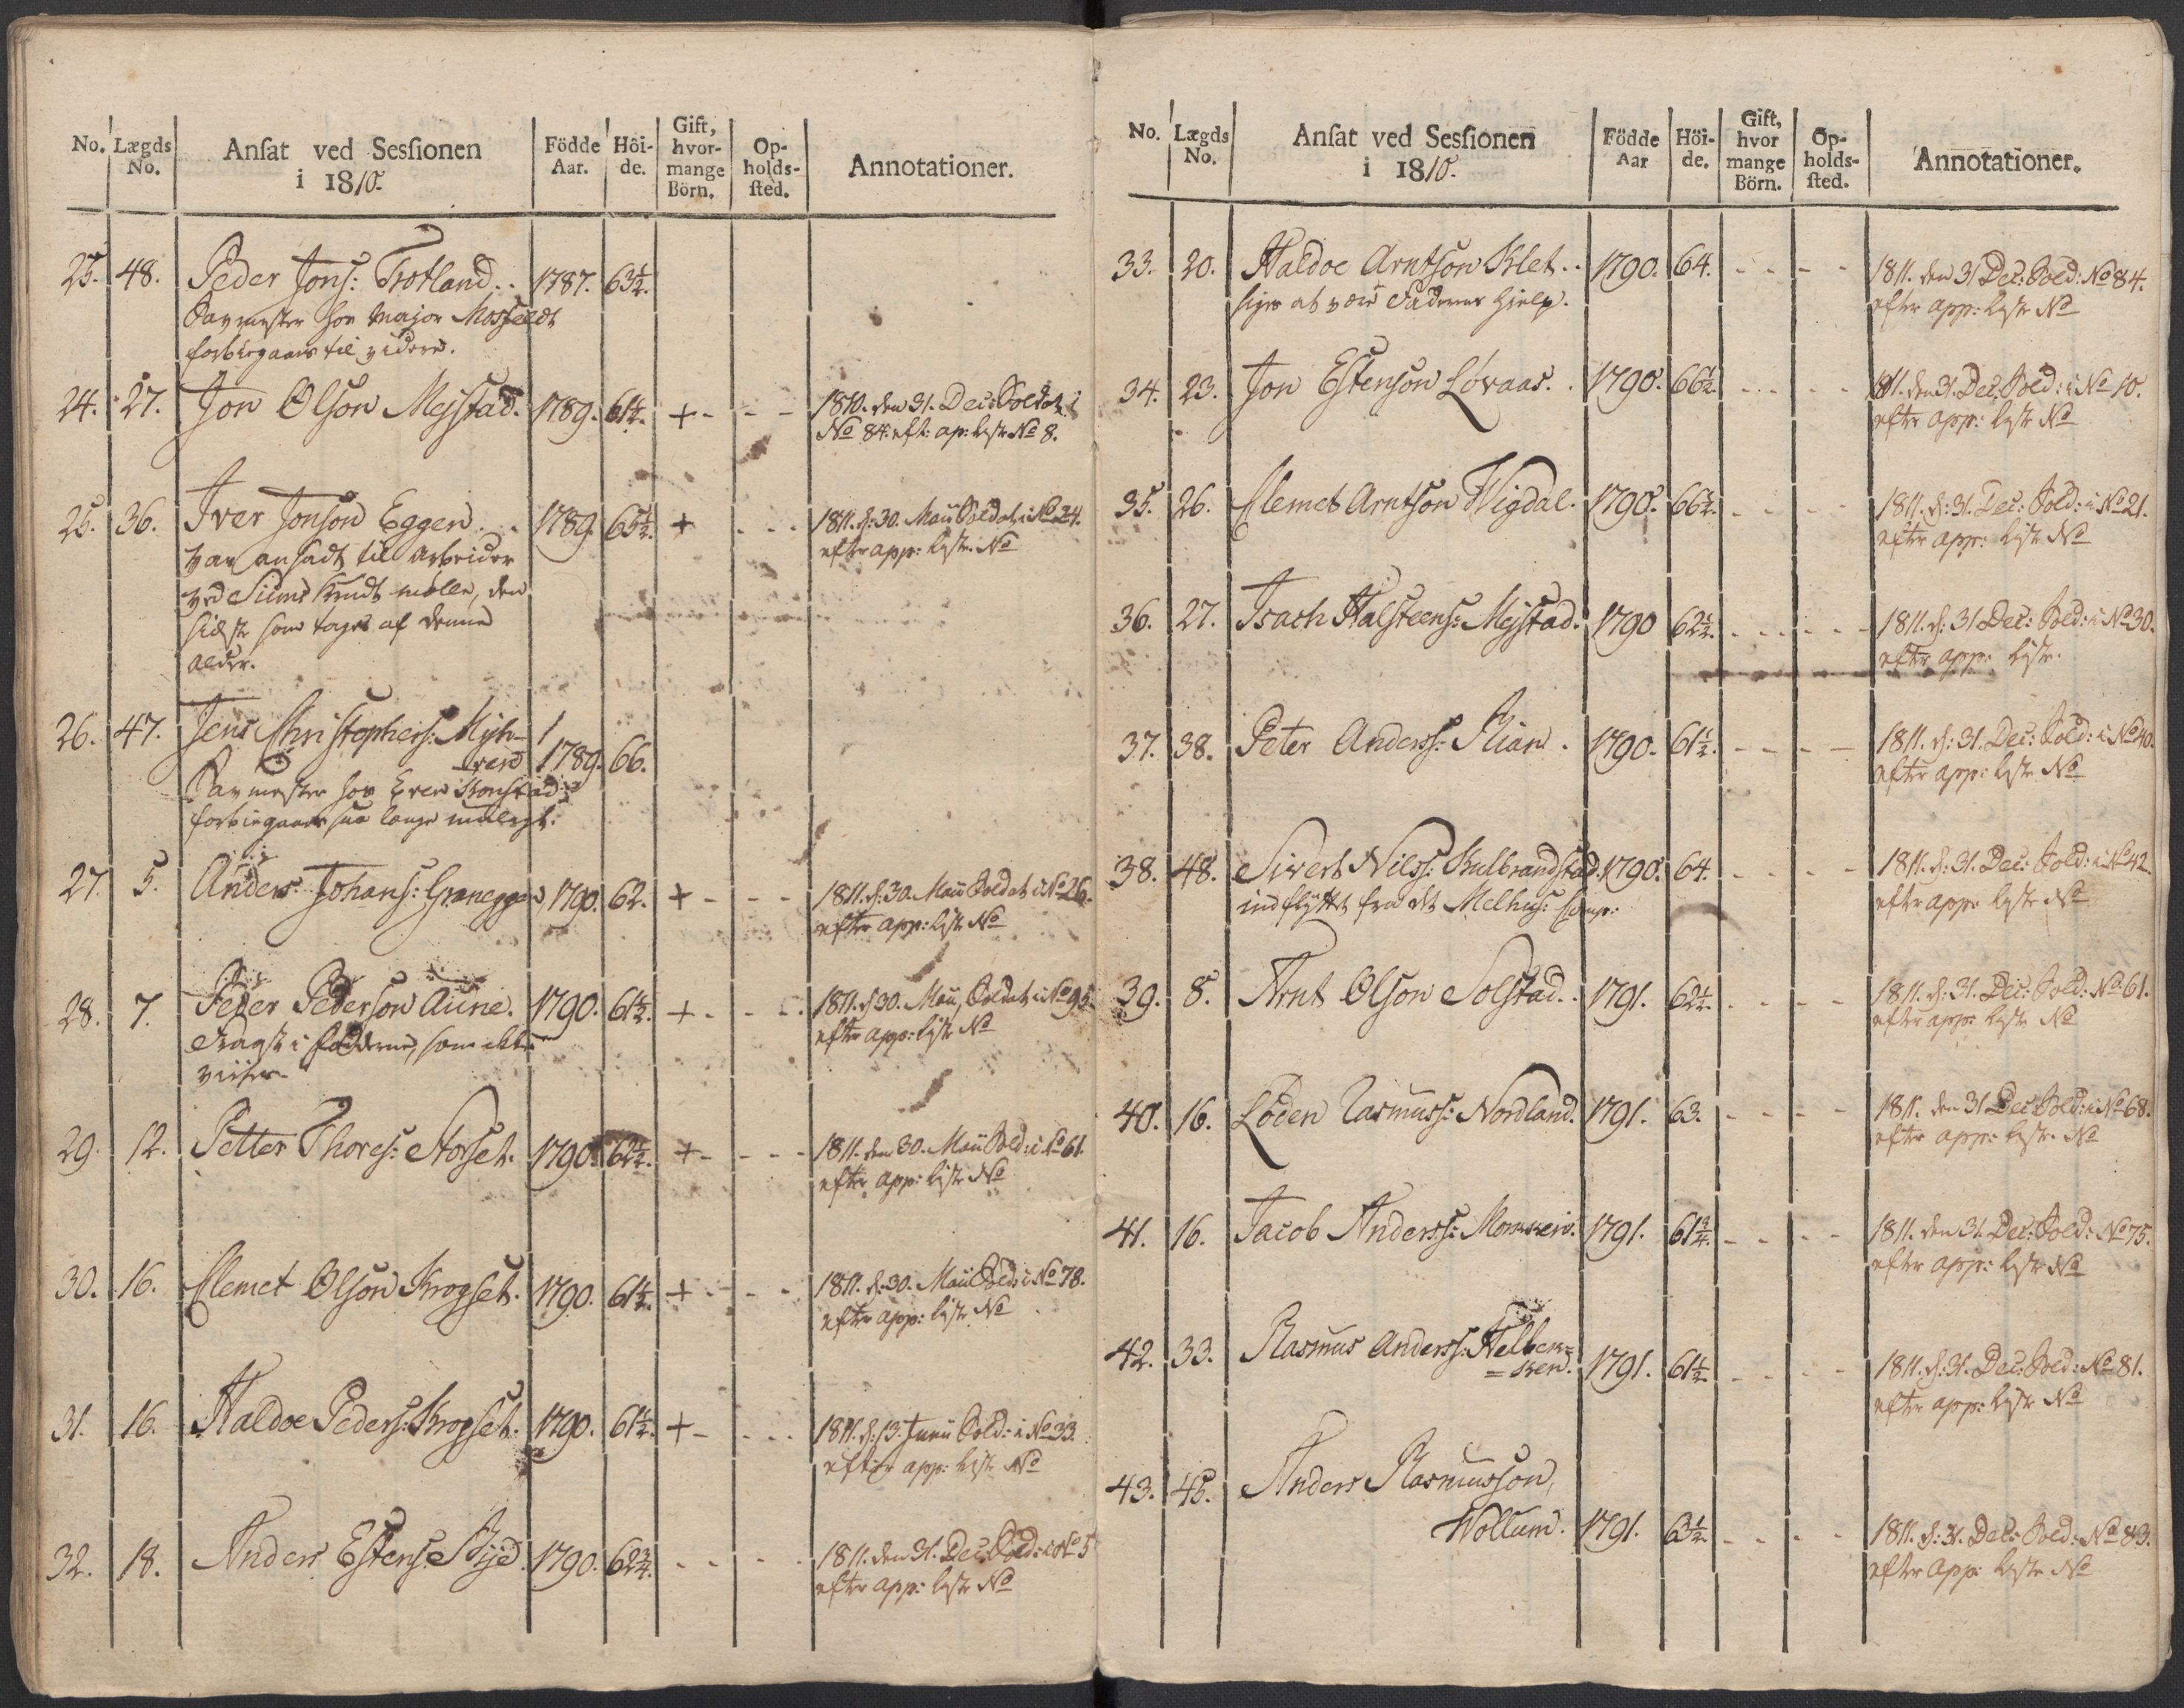 No. Lægds No. Ansat ved Sessionen i 1810. Födde Aar. Höi- de. Gift, hvor- mange Börn. Op- holds- sted. Annotationer.
25. 48. Peder Jons: Trotland.. 1787. 63½.
Savmester hos Major Mosfeldt
forbiegaaes til videre.
24. 27. Jon Olson Mejstad. 1789. 61½. + - - - 1810. den 31. Dec: Soldat i
No 84. eft: ap: Liste No 8.
25. 36. Iver Jonson Eggen.. 1789. 65½. + - - - 1811. d: 30. Maii Soldat i No 34.
efter app: Liste No
var ansadt til Arbeider
ved Siims Krudt-mølle, den
sidste som tages af denne
Alder.
26. 47. Jens Christophers: Myh-
ren 1789. 66.
Savmester hos Even Konstad
forbiegaaes saa længe mueligt.
27. 5. Anders Johans: Graneggen, 1790. 62. + - - - 1811. d: 30. Maii Soldat i No 26.
efter app: Liste No
28. 7. Peder Pederson Aune. 1790. 61½. + - - - 1811. d 30. Maii, Soldat i No 95
efter app: Liste No
i fødderne, som ikke
viises.
29. 12. Petter Thores: Storset. 1790. 62½. + - - - 1811. den 30. Maii Sold: i No 61.
efter app: Liste No
30. 16. Clemet Olson Krogset. 1790. 61½. + - - - 1811. d: 30. Maii Sold: i No 78.
efter app: Liste No
31. 16. Haldoe Peders: Krogset. 1790. 61½. + - - - 1811. d: 13. Junii Sold: i No 33.
efter app: Liste No
32. 18. Anders Estens: Bye. 1790. 62¾. - - - - 1811. den 31. Dec: Sold: i No 5
efter app: Liste No
No. Lægds No. Ansat ved Sessionen i 1810. Födde Aar Höi- de. Gift, hvor mange Börn. Op- holds- sted. Annotationer.
33. 20. Haldoe Arntson Klet.. 1790. 64. - - - - 1811. den 31 Dec: Sold: No 84.
siges at være Faderens Hielp. efter app: Liste No
34. 23. Jon Estenson Løvaas.. 1790. 66½. - - - - 1811. den 31. Dec. Sold: i No 10.
efter app: Liste No
35. 26. Clemet Arntson Wigdal. 1790. 66½. - - - - 1811. d: 31. Dec: Sold: i No 21.
efter app: Liste No
36. 27. Isach Halsteens: Mejstad. 1790 62½. - - - - 1811. d: 31 Dec: Sold: i No 30.
efter app: Liste.
37. 38. Peter Anders: Lian. 1790. 61½. - - - - 1811. d: 31. Dec: Sold: i No 40.
efter app: Liste No
38. 48. Sivert Nilss: Kulbrandstad. 1790. 64. - - - - 1811. d: 31. Dec: Sold: i No 42.
indflyttet fra det Melhus: Comp: efter app: Liste No
39. 8. Arnt Olson Solstad.. 1791. 62½. - - - - 1811. d: 31. Dec: Sold: No 61.
efter app: Liste No
40. 16. Loden Rasmuss: Nordland. 1791. 63. - - - - 1811. den 31 Dec Sold: i No 68.
efter app: Liste No
41. 16. Jacob Anderss: 1791. 61¾. - - - - 1811. den 31. Dec: Sold: No 75.
efter app: Liste No
42. 33. Rasmus Anderss: 1791. 61½. - - - - 1811. d: 31. Dec: Sold: No 81.
efter app: Liste No
43. 45. Anders Rasmusson,
Wollum. 1791. 63½. - - - - 1811. d: 31. Dec: Sold: No 83.
efter app: Liste No